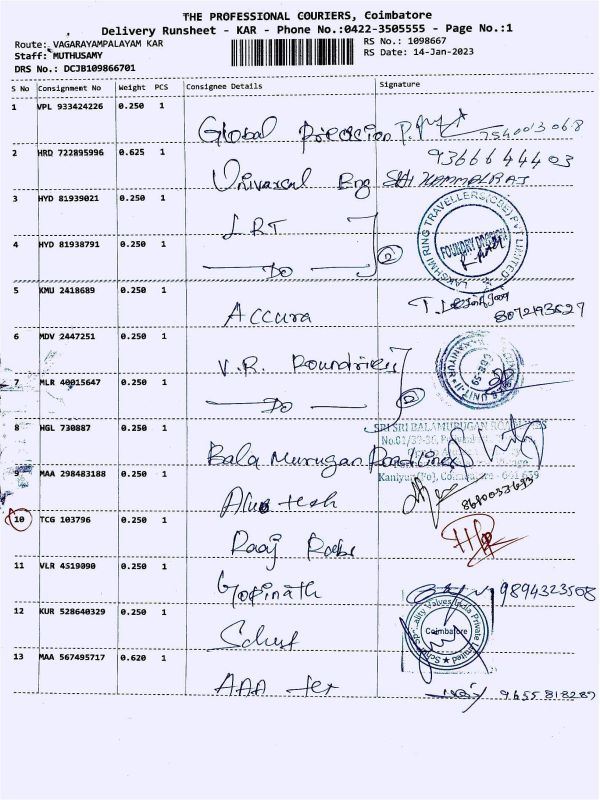 THE PROFESSIONAL COURIERS, Coimbatore
Delivery Runsheet - KAR - Phone No.:0422-3505555 - Page No.:1
Route: VAGARAYAMPALAYAM KAR
RS No.: 1098667
Staff: MUTHUSAMY
RS Date: 14-Jan-2023
DRS No.: DCJB109866701
S No Consignment No Weight PCS Consignee Details Signature
1 VPL 933424226 0.250 1
Global Precision P. 7540013068
2 HRD 722895996 0.625 1
9366644403
Univarsal Eng
3 HYD 81939021 0.250 1
LRT
LAKSHMI RING TRAVELLERS(CBE) PVT LIMITED
FOUNDRY DIVISION
4 HYD 81938791 0.250 1
Do 2
5 KMU 2418689 0.250 1
Accura
8072193627
6 MDV 2447251 0.250 1
V.R. Foundries
7 MLR 40015647 0.250 1
Do 2
8 HGL 730887 0.250 1
SRI SRI BALAMURUGAN
Bala Murugan
9 MAA 298483188 0.250 1
8680033693
10 TCG 103796 0.250 1
Raaj
11 VLR 4519090 0.250 1
Gopinath 9894323508
12 KUR 528640329 0.250 1
Valves India Private Limited
Coimbatore
13 MAA 567495717 0.620 1
AAA Tex
9655818287